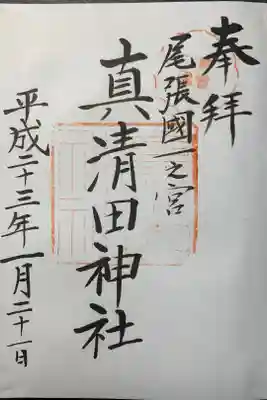 奉拝
尾張國一之宮
真清田神社
平成二十三年一月二十一日